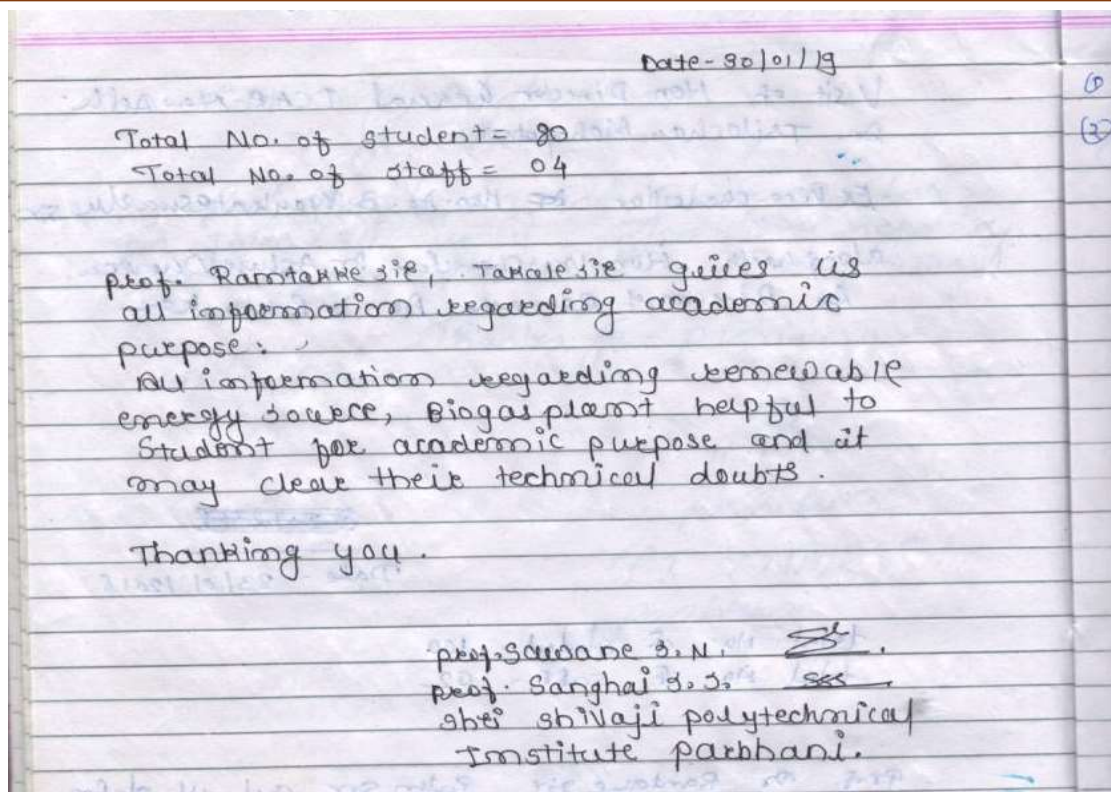 Date - 30/01/19
Total No. of student = 80
Total No. of staff = 04
prof. Ramtakke sir, Takale sir gives us
all information regarding academic
purpose.
All information regarding renewable
energy source, Biogas plant helpful to
Student for academic purpose and it
may clear their technical doubts.
Thanking you.
prof. S. N.
prof. Sanghai S. S. SSS
Shri Shivaji polytechnical
Institute parbhani.